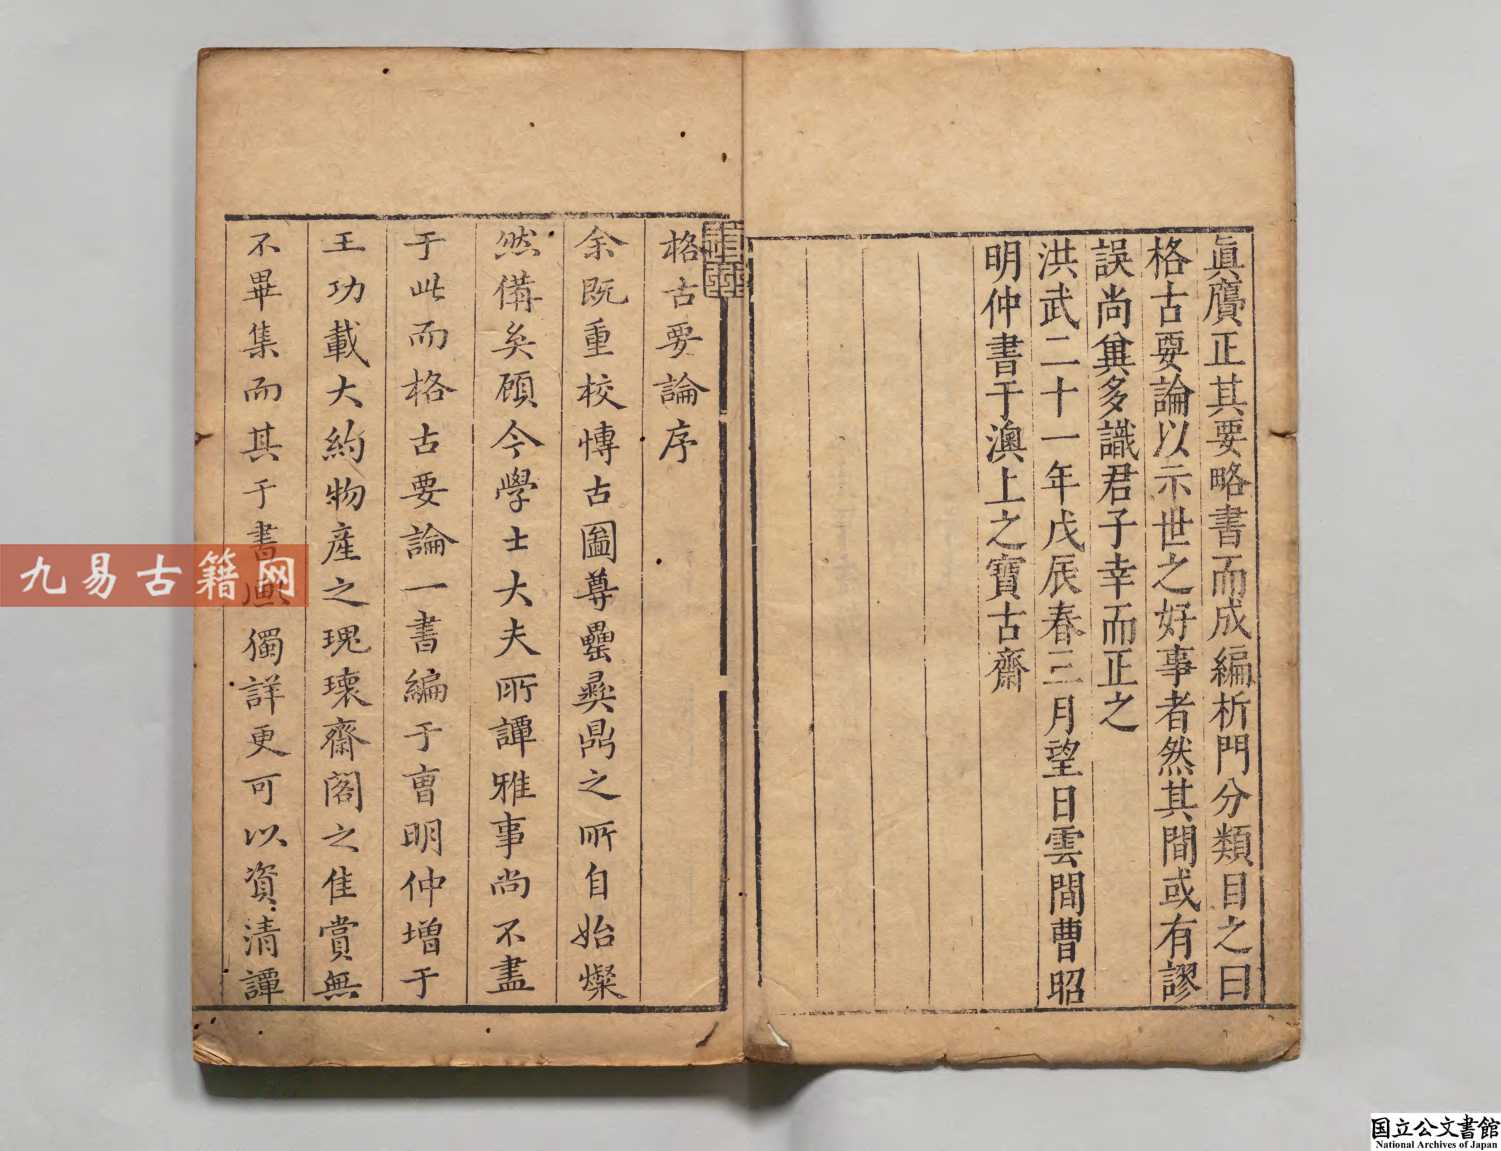 眞贗正其要略書而成編析門分類目之曰
格古要論以示世之好事者然其間或有謬
誤尚兾多識君子幸而正之
洪武二十一年戊辰春三月望日雲間曹昭
明仲書于澳上之寶古齋
格古要論序
余既重校愽古圖尊罍彜鼎之所自始燦
然備矣顧今學士大夫所譚雅事尚不盡
于此而格古要論一書編于曺明仲增于
王功載大約物產之瑰瓌齋閣之佳賞無
不畢集而其于書画獨詳更可以資清譚
九易古籍网
国立公文書館
National Archives of Japan